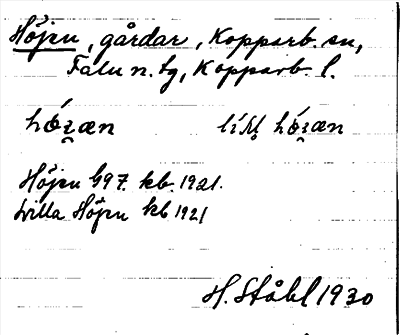 Höjen, gårdar, Kopparb. sn,
Falu n. tg, Kopparb. l.
Höjen 697. kb. 1921.
Lilla Höjen kb 1921
H. Ståhl 1930